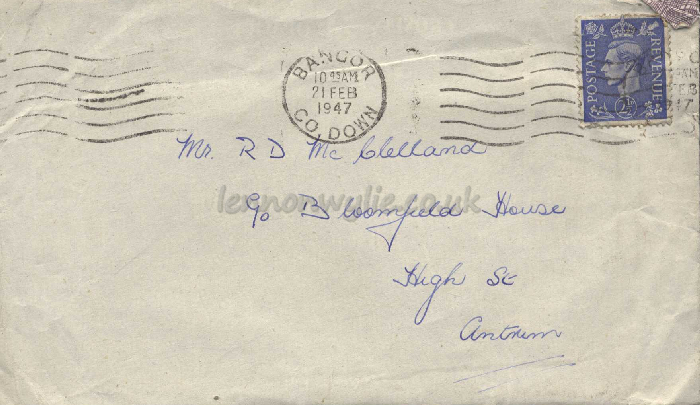 BANGOR
10 45 AM
21 FEB
1947
CO. DOWN
POSTAGE
REVENUE
Mr. R D Mc Clelland
lennonwylie.co.uk
c/o Bloomfield House
High St
Antrim